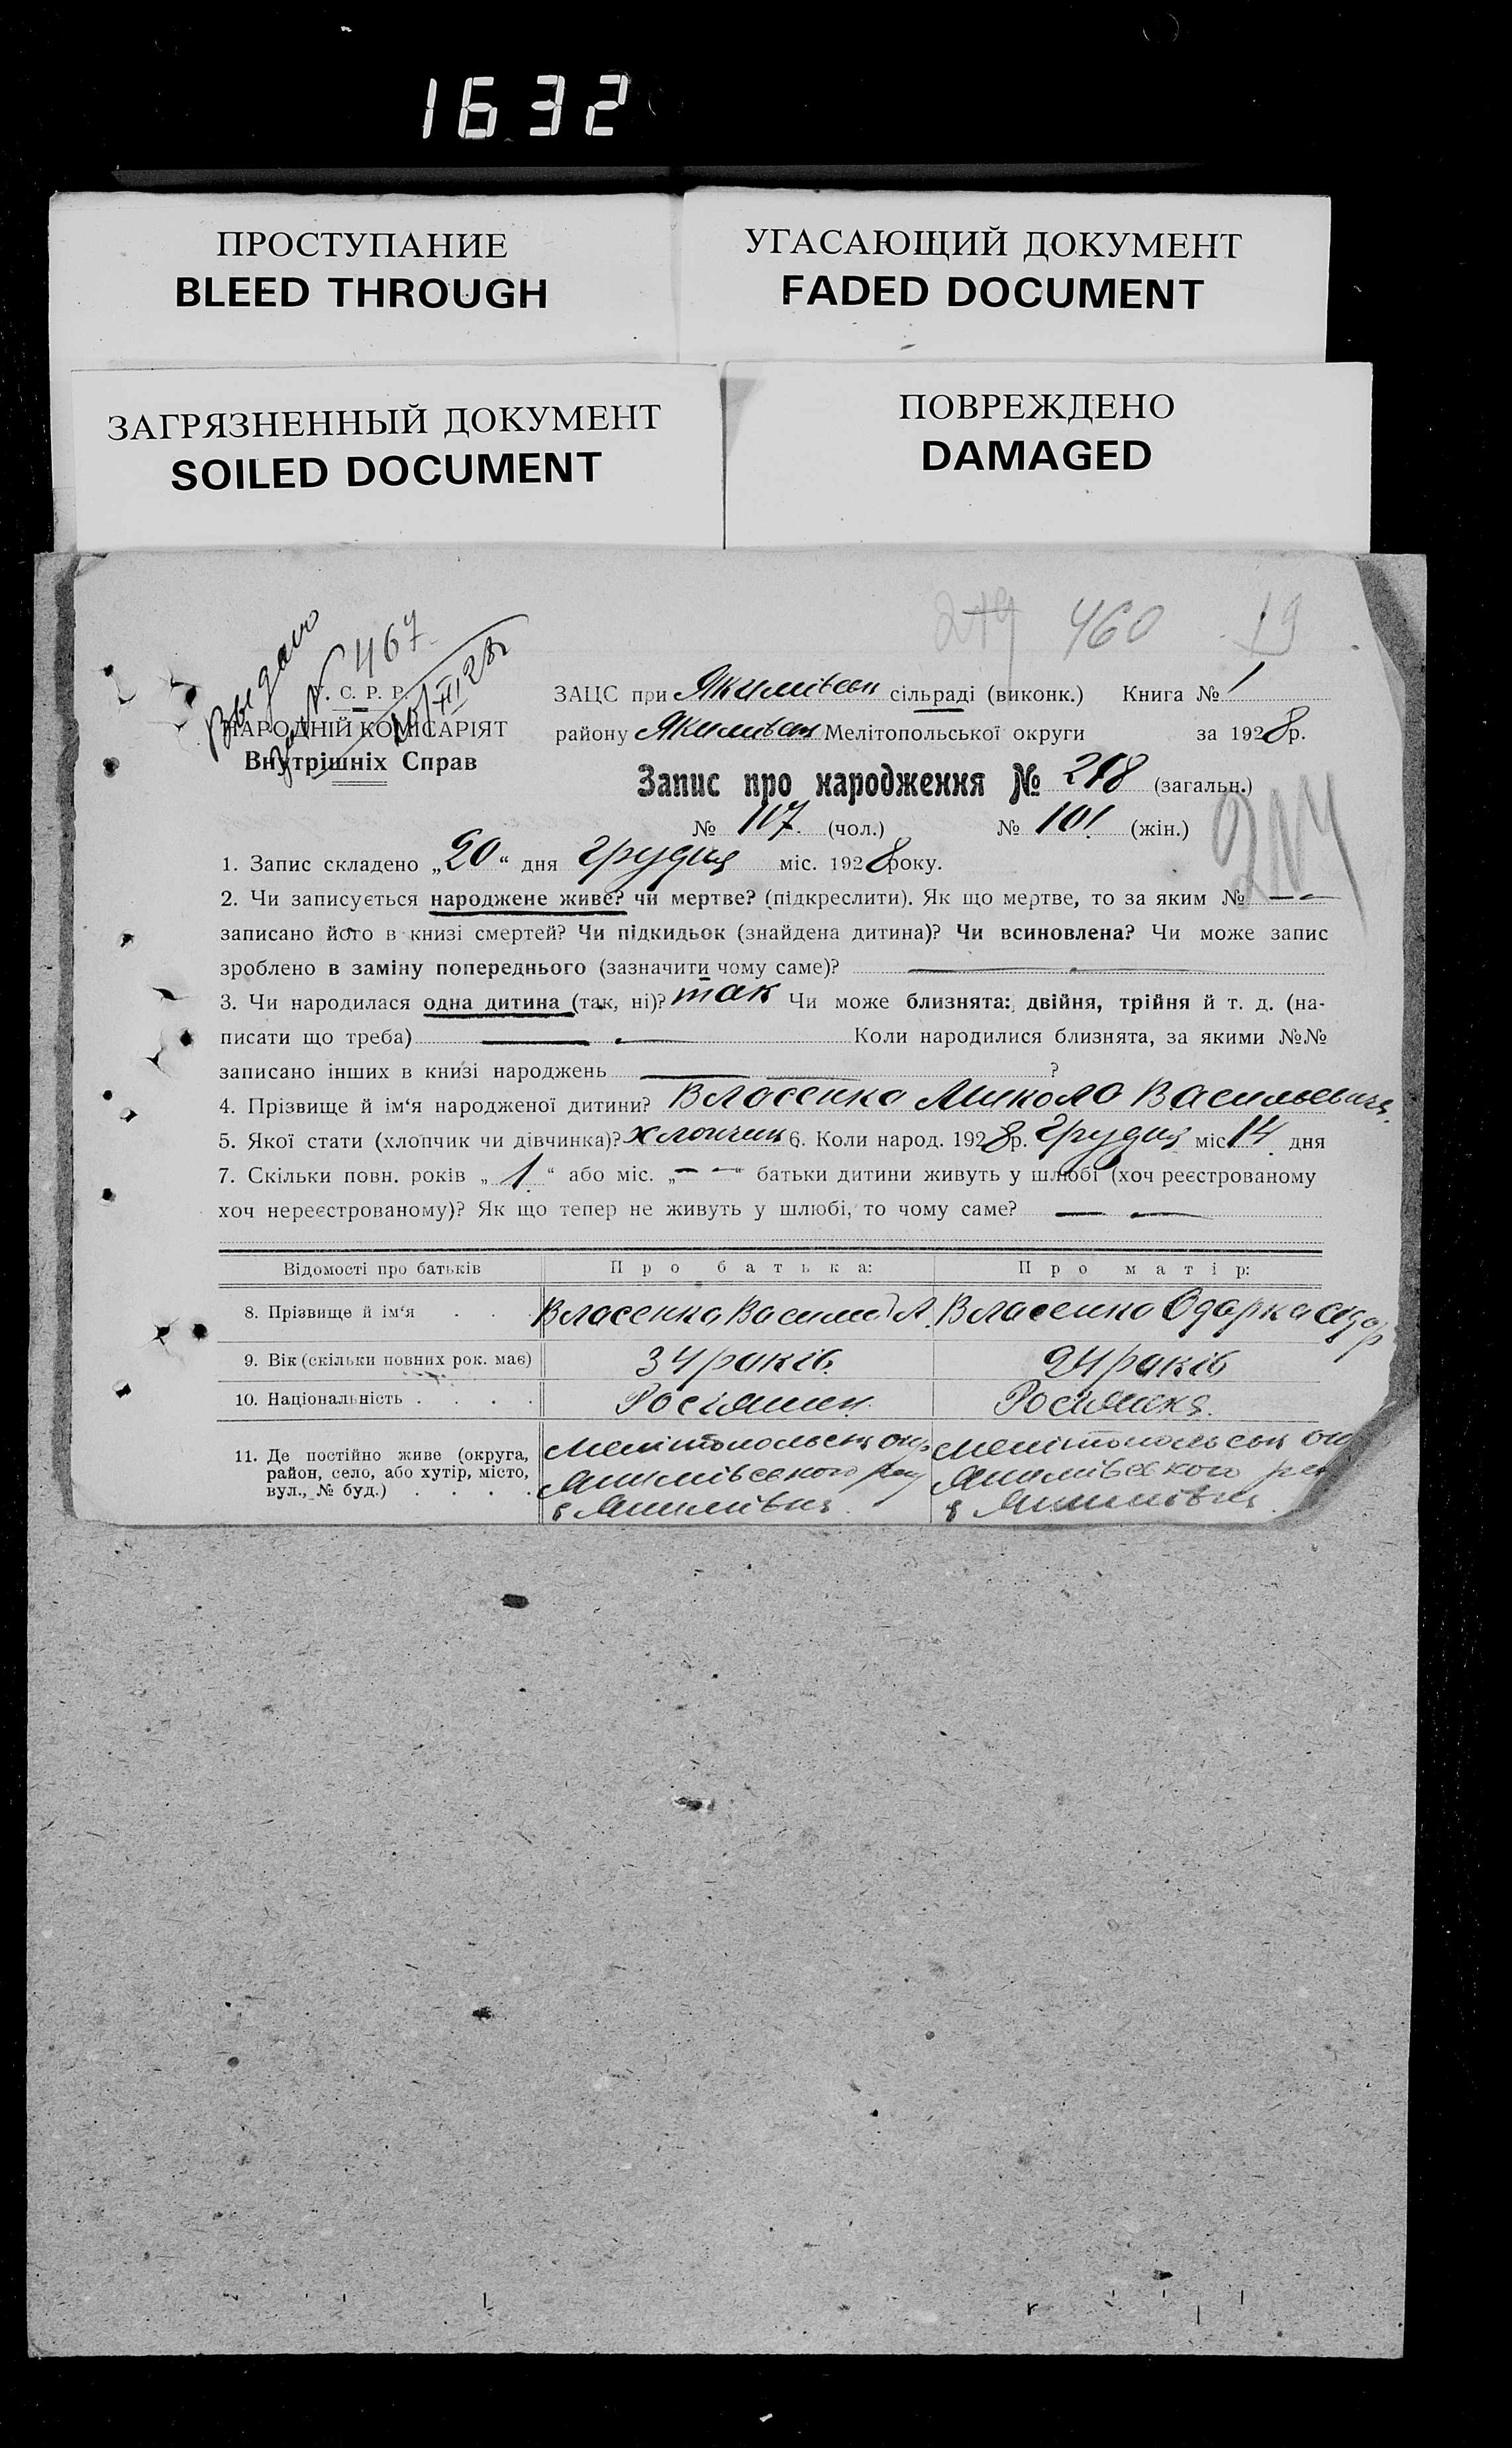 1632
ПРОСТУПАНИЕ
BLEED THROUGH
УГАСАЮЩИЙ ДОКУМЕНТ
FADED DOCUMENT
ЗАГРЯЗНЕННЫЙ ДОКУМЕНТ
SOILED DOCUMENT
ПОВРЕЖДЕНО
DAMAGED
219 460 19
Выдано
№ 467
С. Р. Р.
НАРОДНІЙ КОМІСАРІЯТ
Внутрішніх Справ
ЗАЦС при Якимівськ сільраді (виконк.) Книга № 1
району Якимівськ Мелітопольської округи за 1928 р.
Запис про народження № 218 (загальн.)
№ 117 (чол.) № 101 (жін.)
1. Запис складено „20“ дня грудня міс. 1928 року.
2. Чи записується народжене живе? чи мертве? (підкреслити). Як що мертве, то за яким № —
записано його в книзі смертей? Чи підкидьок (знайдена дитина)? Чи всиновлена? Чи може запис
зроблено в заміну попереднього (зазначити чому саме)? —
3. Чи народилася одна дитина (так, ні)? так Чи може близнята: двійня, трійня й т. д. (на-
писати що треба) — Коли народилися близнята, за якими №№
записано інших в книзі народжень — ?
4. Прізвище й ім‘я народженої дитини? Власенко Микола Васильевич
5. Якої стати (хлопчик чи дівчинка)? хлопчик 6. Коли народ. 1928 р. Грудня міс 14 дня
7. Скільки повн. років „1“ або міс. „— —“ батьки дитини живуть у шлюбі (хоч реєстрованому
хоч нереєстрованому)? Як що тепер не живуть у шлюбі, то чому саме? — —
Відомості про батьків Про батька: Про матір:
8. Прізвище й ім‘я Власенко Василь А. Власенко Одарка
9. Вік (скільки повних рок. має) 34 років. 24 років
10. Національність Росіянин. Росіянка.
11. Де постійно живе (округа, Мелітопольськ окр Мелітопольськ ок
район, село, або хутір, місто, Якимівського рай Якимівського рай
вул., № буд.) с Якимівка. с Якимівка.